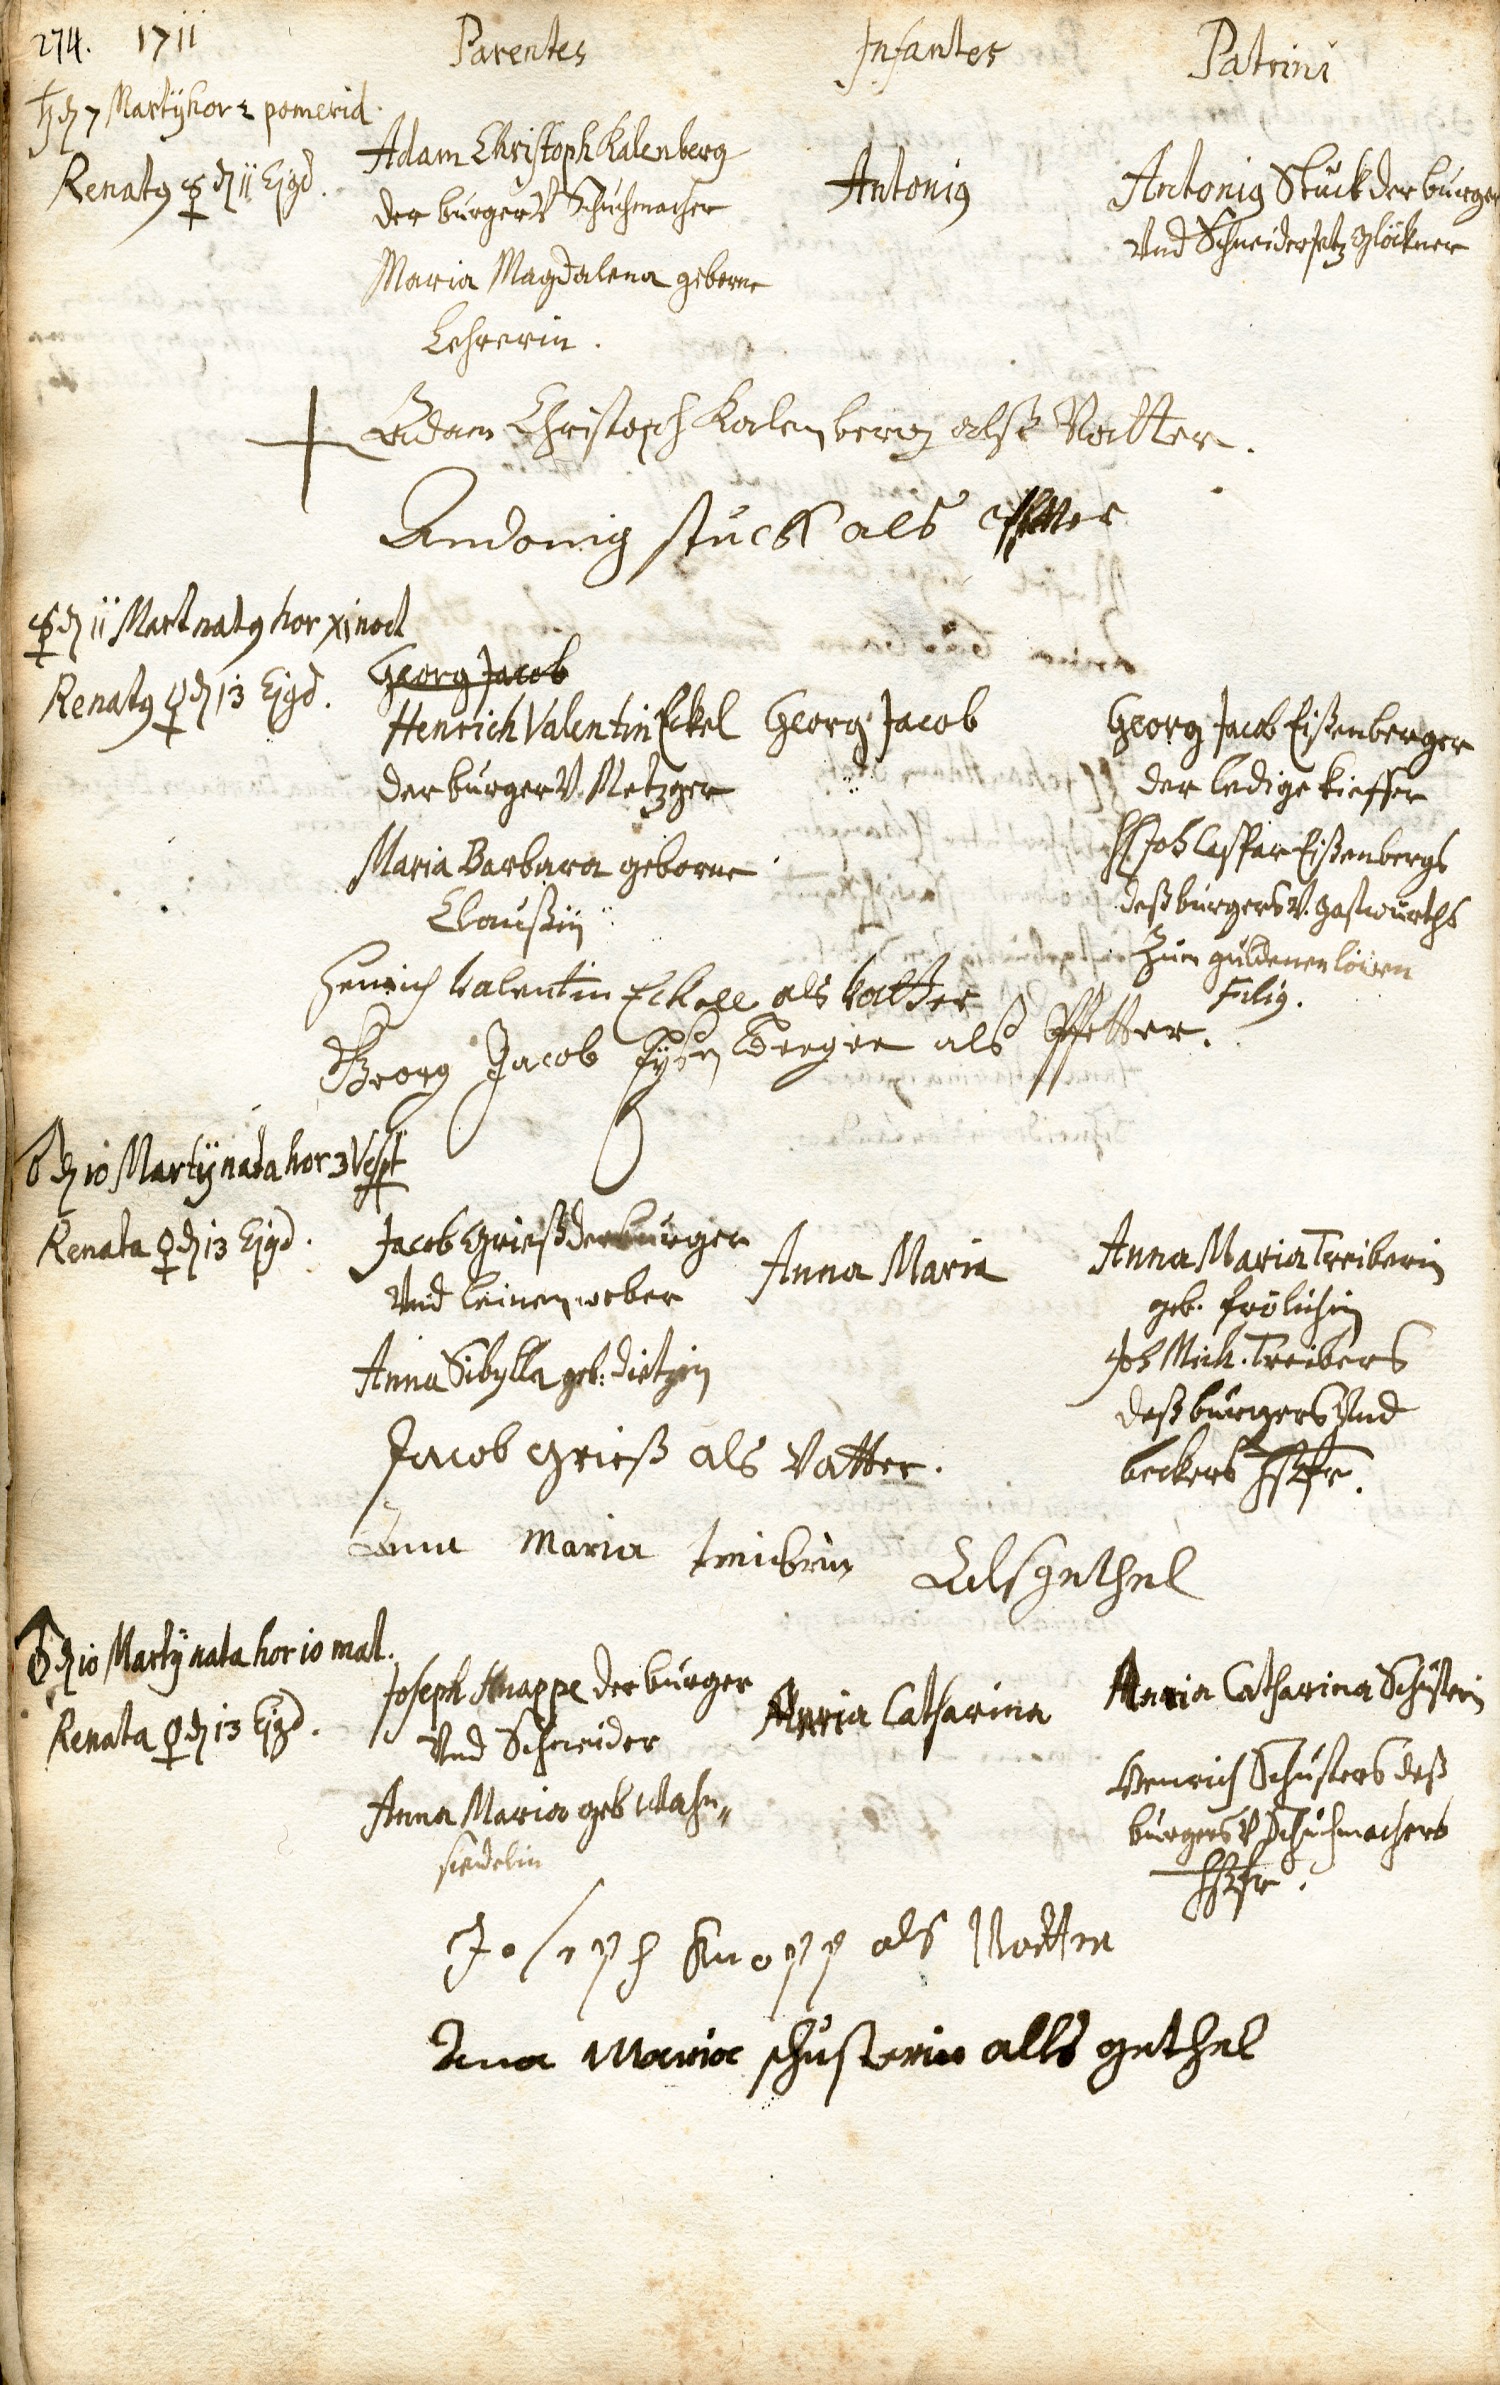 274. 1711 Parentes Infantes Patrini
♄ d 7 Martÿ hor 2 pomerid.
Renatq ☿ d 11 Ejqd.
Adam Christoph Kalenberg
der burger v Schuhmacher
Maria Magdalena geborne
Lehrerin.
Antoniq
Antoniq Stuck der burger
und Schneider jetz glöckner
Adam Christoph Kalenberg alß Vatter.
Andonig stuck als
☿ d 11 Mart natq hor xi noct
Renatq ♀ d 13 Ejqd.
Georg Jacob
Henrich Valentin Eckel
der burger v. Metzger
Maria Barbara geborne
Claußin
Georg Jacob
Georg Jacob Eißenberger
der ledige kieffer
Joh Caspar Eißenbergs
deß burgers v. gastwürths
zum guldenen löwen
Filiq.
Henrich Valentin Eckell als Vatter
Georg Jacob Eÿsenberger als Pfetter.
♂ d 10 Martÿ nata hor 3 Vesp
Renata ♀ d 13 Ejqd.
Jacob Grieß der burger
und leinenweber
Anna Sibylla geb: Dietzin
Anna Maria
Anna Maria Treiberin
geb. frölichin
Joh Mich. Treibers
deß burgers und
beckers hßfr.
Jacob Grieß als Vatter.
Anna Maria treibrin Als gethel
♂ d 10 Martÿ nata hor 10 mat.
Renata ♀ d 13 Ejqd.
Joseph Knappe der burger
und Schneider
Anna Maria geb Wahn„
siedelin
Maria Catharina
Maria Catharina Schusterin
Henrich Schusters deß
burgers v Schuhmachers
hßfr.
Joseph Knopp als Vatter
Ana Maria schusterin alls gethel